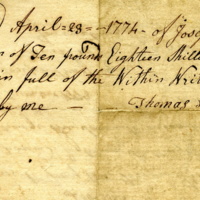 April=23=—1774- of Jos
n of Ten pounds Eighteen Shill
in full of the Within Writ
by me — Thomas